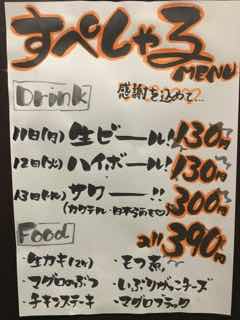 すぺしゃる
MENU
Drink
感謝を込めて…
11日(月) 生ビール! 130円
12日(火) ハイボール! 130円
13日(水) サワー!! 300円
(カクテル・日本酒も)
Food
All 390円
・生カキ(2ケ) ・モツ煮
・マグロのぶつ ・いぶりがっこチーズ
・チキンステーキ ・マグロブラック